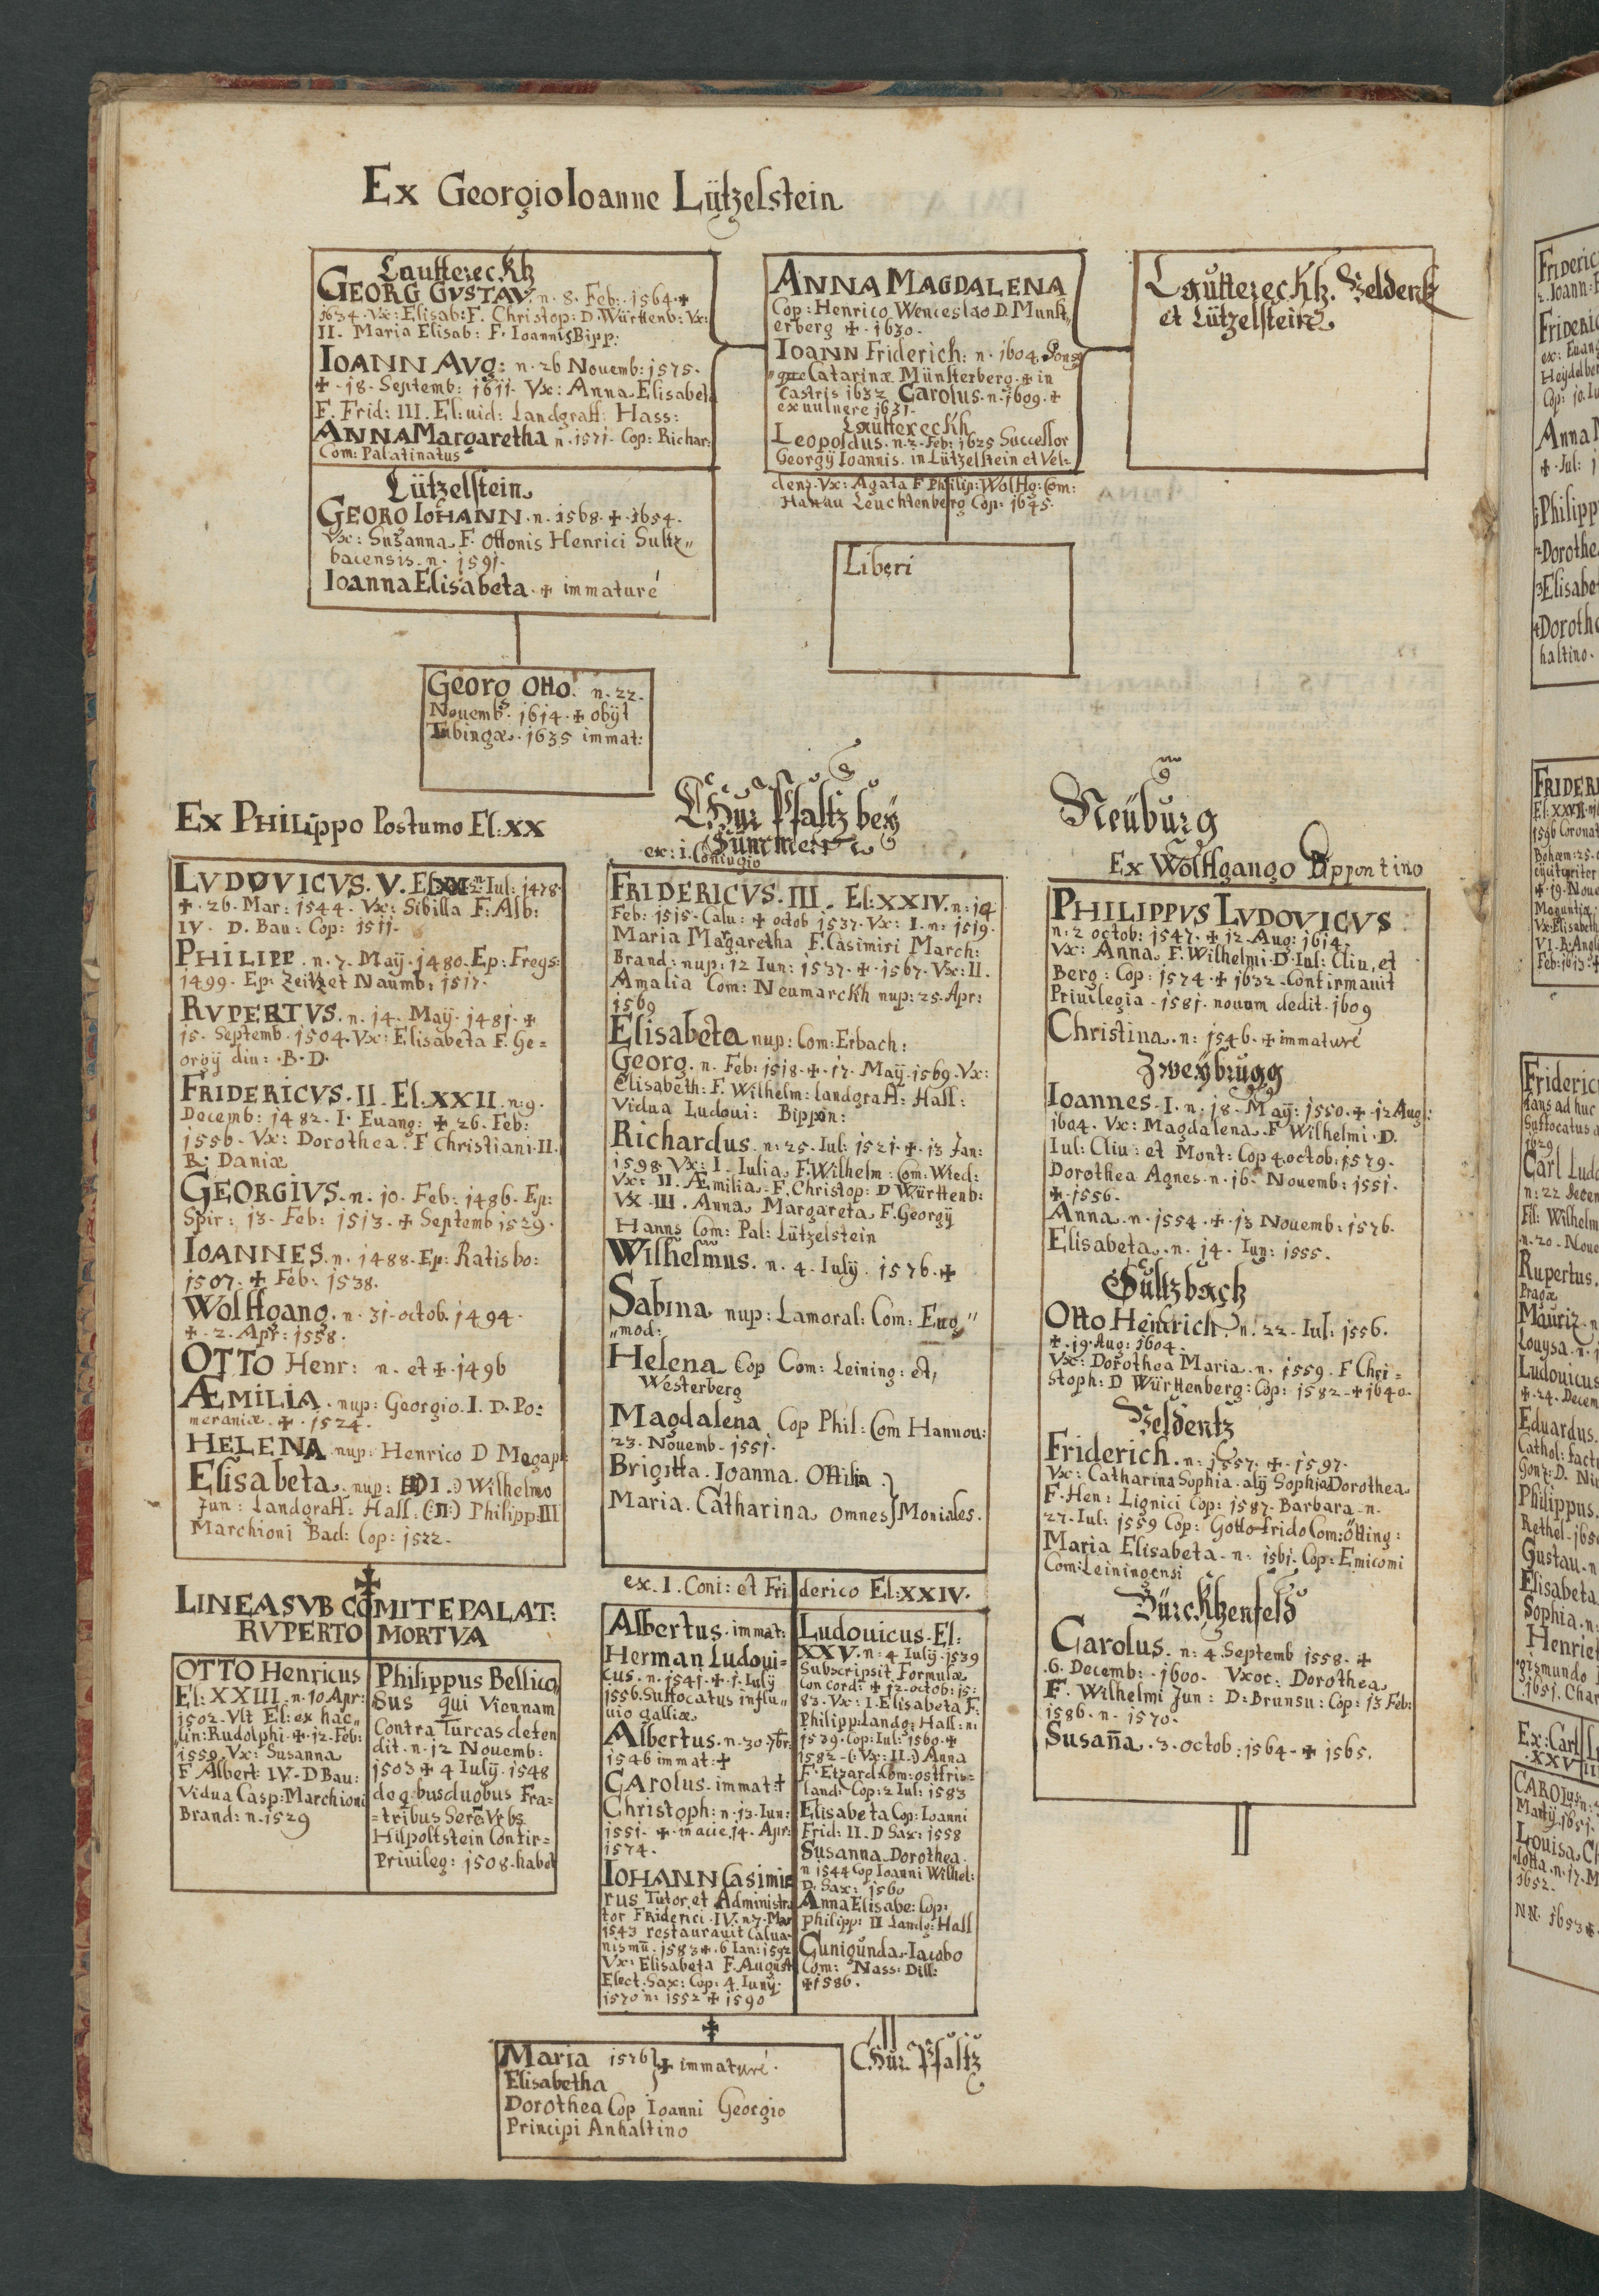 Ex Georgio Ioanne Lützelstein
Lauttereckh
GEORG GVSTAV. n. 8. Feb: 1564. ✠
1634. Vx: Elisab: F. Christop: D. Württenb: Vx:
II. Maria Elisab: F. Ioannis Bipp:
IOANN AVG: n. 26 Nouemb: 1575.
✠ . 18. Septemb: 1611. Vx: Anna Elisabeta
F. Frid: III. El: uid: Landgraff: Hass:
ANNA Margaretha n. 1571. Cop: Richar:
Com: Palatinatus
Lützelstein
GEORG IOHANN. n. 1568. ✠. 1654.
Vx: Susanna F. Ottonis Henrici Sultz„
bacensis. n. 1591.
Ioanna Elisabeta. ✠ immaturé
Georg Otto. n. 22.
Nouemb. 1614. ✠ obijt
Tubingæ. 1635 immat:
ANNA MAGDALENA
Cop: Henrico Wenceslao D. Munst„
erberg ✠. 1630.
IOANN Friderich: n. 1604. Spons9
que Catarinæ Münsterberg. ✠ in
Castris 1632 Carolus. n. 1609. ✠
ex uulnere 1631.
Lauttereckh
Leopoldus. n. 2. Feb: 1625 Successor
Georgij Ioannis. in Lützelstein et Vel=
denz. Vx: Agata F Philip: Wolffg: Com:
Hanau Leuchtenberg Cop: 1645.
Liberi
Lauttereckh. Veldenz
et Lützelstein
Ex PHILIPPO Postumo El: XX
LVDOVICVS. V. El: XXI n. 2. Iul: 1478.
✠. 26. Mar: 1544. Vx: Sibilla F: Alb:
IV. D. Bau: Cop: 1511.
PHILIPP. n. 7. Maij. 1480. Ep: Freys:
1499. Ep: Zeitz et Naumb: 1517.
RVPERTVS. n. 14. Maij. 1481. ✠
15. Septemb. 1504. Vx: Elisabeta F. Ge=
orgij diu: B. D.
FRIDERICVS. II. El. XXII. n: 9.
Decemb: 1482. I. Euang: ✠ 26. Feb:
1556. Vx: Dorothea. F Christiani. II.
R: Daniæ
GEORGIVS. n. 10. Feb: 1486. Ep:
Spir: 13. Feb: 1513. ✠ Septemb 1529.
IOANNES. n. 1488. Ep: Ratisbo:
1507. ✠ Feb: 1538.
Wolffgang. n. 31. octob. 1494.
✠. 2. Apr: 1558.
OTTO Henr: n. et ✠. 1496
ÆMILIA. nup: Georgio. I. D. Po=
meraniæ. ✠. 1524.
HELENA nup: Henrico D Megap:
Elisabeta. nup: (I.) Wilhelmo
Jun: Landgraff: Hass. (:II:) Philipp: III
Marchioni Bad: Cop: 1522.
✠
LINEA SVB COMITE PALAT:
RVPERTO MORTVA
OTTO Henricus
El: XXIII. n. 10. Apr:
1502. Vlt El: ex hac„
„lin: Rudolphi. ✠. 12. Feb:
1559. Vx: Susanna
F Albert: IV. D Bau:
Vidua Casp: Marchioni
Brand: n. 1529
Philippus Bellico„
sus qui Viennam
Contra Turcas defen
dit. n. 12 Nouemb:
1503 ✠ 4 Iulij. 1548
de q. bus duobus Fra=
=tribus Serē: Vrbs
Hilpoltstein Confir=
Priuileg: 1508. habet
Chur Pfaltz bey
Simmern
ex: i. Coniugio
FRIDERICVS. III. El: XXIV. n: 14
Feb: 1515. Calu: ✠ octob 1537. Vx: I. n: 1519.
Maria Margaretha F. Casimiri March:
Brand: nup: 12 Iun: 1537. ✠. 1567. Vx: II.
Amalia Com: Neumarckh nup: 25. Apr:
1569
Elisabeta nup: Com: Erbach:
Georg. n. Feb: 1518. ✠. 17. Maij. 1569. Vx:
Elisabeth: F. Wilhelm: landgraff: Hass:
Vidua Ludoui: Bippon:
Richardus. n: 25. Iul: 1521. ✠. 13 Jan:
1598 Vx: I. Iulia F. Wilhelm: Com: Wied:
Vx: II. Æmilia. F. Christop: D Württenb:
VX. III. Anna Margareta F. Georgij
Hanns Com: Pal: Lützelstein
Wilhelmus. n. 4. Iulij. 1576. ✠
Sabina nup: Lamoral: Com: Eug„
„mod:
Helena Cop Com: Leining: et
Westerberg
Magdalena Cop Phil: Com Hannou:
23. Nouemb. 1551.
Brigitta. Ioanna. Ottilia
Maria. Catharina omnes Moniales.
ex. I. Coni: et Friderico El: XXIV.
Albertus. immat:
Herman Ludoui=
cus. n. 1541. ✠. 1. Iulij
1556. Suffocatus influ„
uio galliæ
Albertus. n. 30. 7br:
1546 immat: ✠
Carolus. immat: ✝
Christoph: n. 13. Iun:
1551. ✠. in acie 14. Apr:
1574.
IOHANN Casimi
rus Tutor et Administra
tor Friderici. IV. n. 7. Mar
1543 restaurauit Calua
nismū. 1583 ✠. 6 Ian: 1592
Vx: Elisabeta F. August
Elect. Sax: Cop: 4. Iunij.
1570 n: 1552 ✠ 1590
Ludouicus. El:
XXV. n: 4 Iulij. 1539
Subscripsit Formulæ
Concord: ✠ 12. octob: 15:
83. Vx: I. Elisabeta F:
Philipp: Landg: Hass: n:
1539. Cop: Iul: 1560. ✠
1582. (: Vx: II.:) Anna
F. Etzard. Com: ostfris=
land: Cop: 2 Iul: 1583
Elisabeta Cop: Ioanni
Frid: II. D Sax: 1558
Susanna Dorothea.
n 1544 Cop Ioanni Wilhel:
D. Sax: 1560
Anna Elisabe: Cop:
Philipp: II Landg: Hass
Cunigunda. Iacobo
Com: Nass: Dill:
✠ 1586.
✠
Maria 1576 ✠ immaturé.
Elisabetha
Dorothea Cop Ioanni Georgio
Principi Anhaltino
Chur Pfaltz
Neüburg
Ex Wolffgango Bippontino
PHILIPPVS LVDOVICVS
n: 2 octob: 1547. ✠ 12. Aug: 1614.
Vx: Anna F. Wilhelmi. D. Iul: Cliu. et
Berg: Cop: 1574. ✠ 1632. Confirmauit
Priuilegia. 1581. nouum dedit. 1609
Christina. n: 1546. ✠ immaturé
Zweybrugg
Ioannes. I. n: 18. Maij: 1550. ✠. 12 Aug:
1604. Vx: Magdalena. F Wilhelmi. D.
Iul: Cliu: et Mont: Cop 4. octob: 1579.
Dorothea Agnes. n. 16. Nouemb: 1551.
✠. 1556.
Anna. n. 1554. ✠. 13 Nouemb: 1576.
Elisabeta. n. 14. Iun: 1555.
Sultzbach
Otto Heinrich. n. 22. Iul: 1556.
✠. 19. Aug: 1604.
Vx: Dorothea Maria. n. 1559. F Chri=
stoph: D Württenberg: Cop: 1582. ✠ 1640.
Veldentz
Friderich. n: 1557. ✠. 1597.
Vx: Catharina Sophia. alij Sophia Dorothea
F. Hen: Lignici Cop: 1587. Barbara. n.
27. Iul: 1559 Cop: Gottofrido Com: Ötting:
Maria Elisabeta. n: 1561. Cop: Emicomi
Com: Leiningensi
Bürckhenfeld
Carolus. n: 4 Septemb 1558. ✠
.6. Decemb: 1600. Vxor: Dorothea
F. Wilhelmi Jun: D: Brunsu: Cop: 13 Feb:
1586. n. 1570.
Susan̄a. 3. octob: 1564. ✠ 1565.